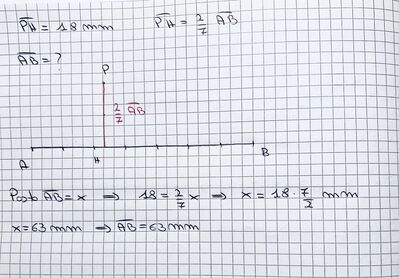 PH = 18 mm PH = 2/7 AB
AB = ?
P
2/7 AB
A H B
Posto AB = x ⇒ 18 = 2/7 x ⇒ x = 18 · 7/2 mm
x = 63 mm → AB = 63 mm